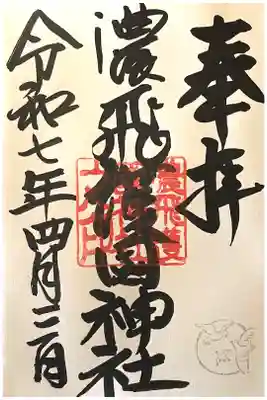 奉拝
濃飛護國神社
令和七年四月三日